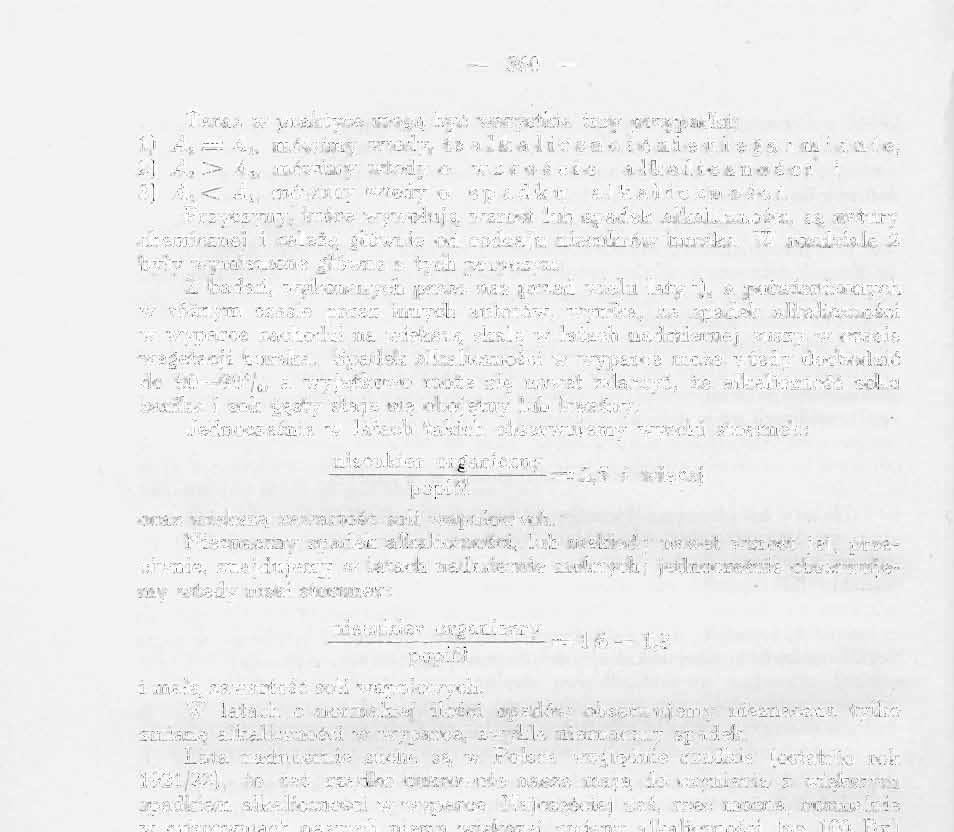 — 360 —
Teraz w praktyce mogą być wszystkie trzy wypadki:
1) A₂ = A₁, mówimy wtedy, że alkaliczność nie ulega zmianie,
2) A₂ > A₁, mówimy wtedy o wzroście alkaliczności i
3) A₂ < A₁, mówimy wtedy o spadku alkaliczności.
Przyczyny, które wywołują wzrost lub spadek alkaliczności, są natury
chemicznej i zależą głównie od rodzaju niecukrów buraka. W rozdziale 2
były wymienione główne z tych przyczyn.
Z badań, wykonanych przez nas przed wielu laty ¹), a potwierdzonych
w różnym czasie przez innych autorów, wynika, że spadek alkaliczności
w wyparce zachodzi na większą skalę w latach nadmiernej suszy w czasie
wegetacji buraka. Spadek alkaliczności w wyparce może wtedy dochodzić
do %, a wyjątkowo może się nawet zdarzyć, że alkaliczność soku
zanika i sok gęsty staje się obojętny lub kwaśny.
Jednocześnie w latach takich obserwujemy wysoki stosunek:
niecukier organiczny
popiół
i więcej
oraz większą zawartość soli wapniowych.
Nieznaczny spadek alkaliczności, lub niekiedy nawet wzrost jej,
znajdujemy w latach nadmiernie mokrych; jednocześnie obserwuje-
my wtedy niski stosunek:
niecukier organiczny
popiół
i małą zawartość soli wapniowych.
W latach o normalnej ilości opadów obserwujemy nieznaczną tylko
zmianę alkaliczności w wyparce, zwykle nieznaczny spadek.
Lata nadmiernie suche są w Polsce względnie rzadkie (ostatnio rok
1921/22), to też rzadko cukrownie nasze mają do czynienia z większym
spadkiem alkaliczności w wyparce. Najczęściej zaś, rzec można, normalnie
w cukrowniach naszych niema większej zmiany alkaliczności